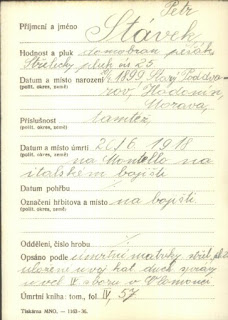 Petr
Příjmení a jméno Stávek
Hodnost a pluk domobran pěšák
Střelecký pluk čís 25.
Datum a místo narození 1899 Starý Poddvo-
(polit. okres, země) rov, Hodonín,
Morava,
Příslušnost tamtéž
(polit. okres, země)
Datum a místo úmrtí 26/6 1918
(polit. okres, země) na Montello na
italském bojišti
Datum pohřbu
Označení hřbitova a místo na bojišti
(polit. okres, země)
Oddělení, číslo hrobu
Opsáno podle úmrtní matriky střel. pl.
uložené u voj kat. duch. správy
u vel. IV. sboru v Olomouci
Úmrtní kniha: tom, fol. IV, 57
Tiskárna MNO. — 1103-36.